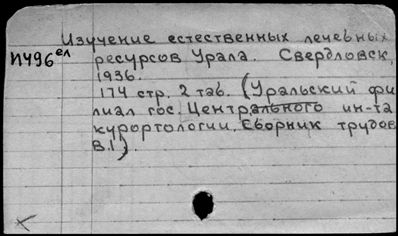 Изучение естественных лечебных
И496ел ресурсов Урала. Свердловск,
1936.
174 стр. 2 таб. (Уральский фи
лиал гос. Центрального ин-та
курортологии. Сборник трудов
В.I).